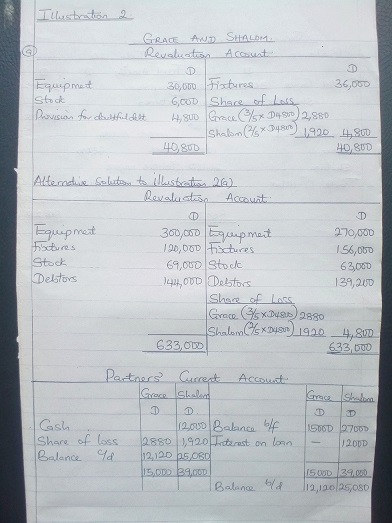 Illustration 2
GRACE AND SHALOM.
(a) Revaluation Account
D D
Equipmet 30,000 Fixtures 36,000
Stock 6,000 Share of Loss
Provision for doubtful debt 4,800 Grace (3/5 x D4800) 2,880
Shalom (2/5 x D4800) 1,920 4,800
40,800 40,800
Alternative Solution to Illustration 2(a)
Revaluation Account
D D
Equipmet 300,000 Equipmet 270,000
Fixtures 120,000 Fixtures 156,000
Stock 69,000 Stock 63000
Debtors 144,000 Debtors 139,200
Share of Loss
Grace (3/5 x D4800) 2880
Shalom (2/5 x D4800) 1920 4,800
633,000 633,000
Partners' Current Account
Grace Shalom Grace Shalom
D D D D
Cash 12,000 Balance b/f 15000 27000
Share of loss 2880 1,920 Interest on loan - 12000
Balance c/d 12,120 25,080
15,000 39,000 15000 39,000
Balance b/d 12,120 25,080